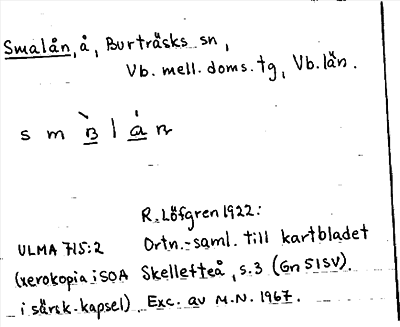 Smalån, å, Burträsks sn,
Vb. mell. doms. tg, Vb. län.
s m l a n
R. Löfgren 1922:
ULMA 715:2 Ortn.-saml. till kartbladet
(xerokopia i SOA Skellefteå, s.3 (Gn 51SV).
i särsk. kapsel). Exc. av M.N. 1967.